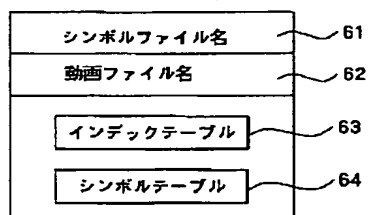 シンボルファイル名 61
動画ファイル名 62
インデックテーブル 63
シンボルテーブル 64